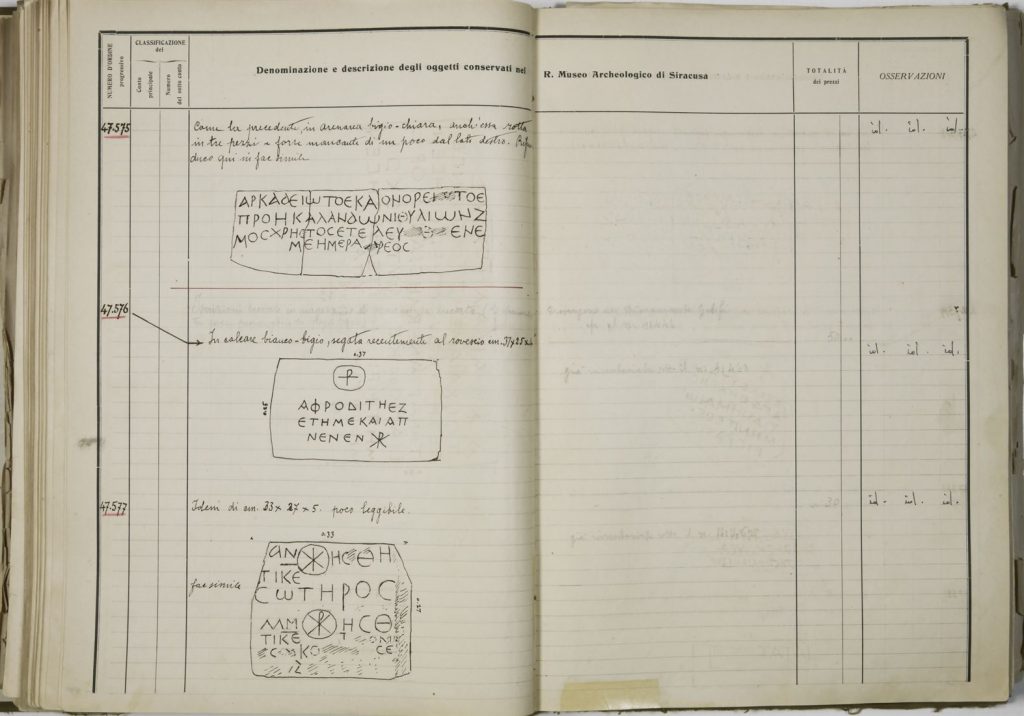 NUMERO D'ORDINE
progressivo
CLASSIFICAZIONE
del
Conto
principale
Numero
del sotto conto
Denominazione e descrizione degli oggetti conservati nel R. Museo Archeologico di Siracusa
TOTALITÀ
dei pezzi
OSSERVAZIONI
47.575
Come la precedente, in arenaria bigio-chiara, anch'essa rotta
in tre pezzi e forse mancante di un poco dal lato destro. Ripro
duco qui in facsimile
id. id. id.
ΑΡΚΑΔΕΙΨΤΟΕΚΑ ΟΝΟΡΕ ΤΟΕ
ΠΡΟΗΚΑΛΑΝΔΩΝΙΘΥΛΙΩΝΖ
ΜΟCΧΡΗCΤΟCΕΤΕΛΕΥ ΕΝΕ
ΜΕΗΜΕΡΑ ΡΕΟC
47.576
In calcare bianco-bigio, segata recentemente al rovescio cm. 37×25×
id. id. id.
0.37
0.25
ΑΦΡΟΔΙΤΗΕΖ
ΕΤΗΜΕΚΑΙΑΠ
ΝΕΝΕΝ ☧
47.577
Idem di cm. 33 × 27 × 5. poco leggibile.
id. id. id.
0.33
facsimile
0.27
ΑΝ ΗCΘΗ
ΤΙΚΕ
CΩΤΗΡΟC
ΛΜΜ ☧ ΗCΘ
ΤΙΚΕ